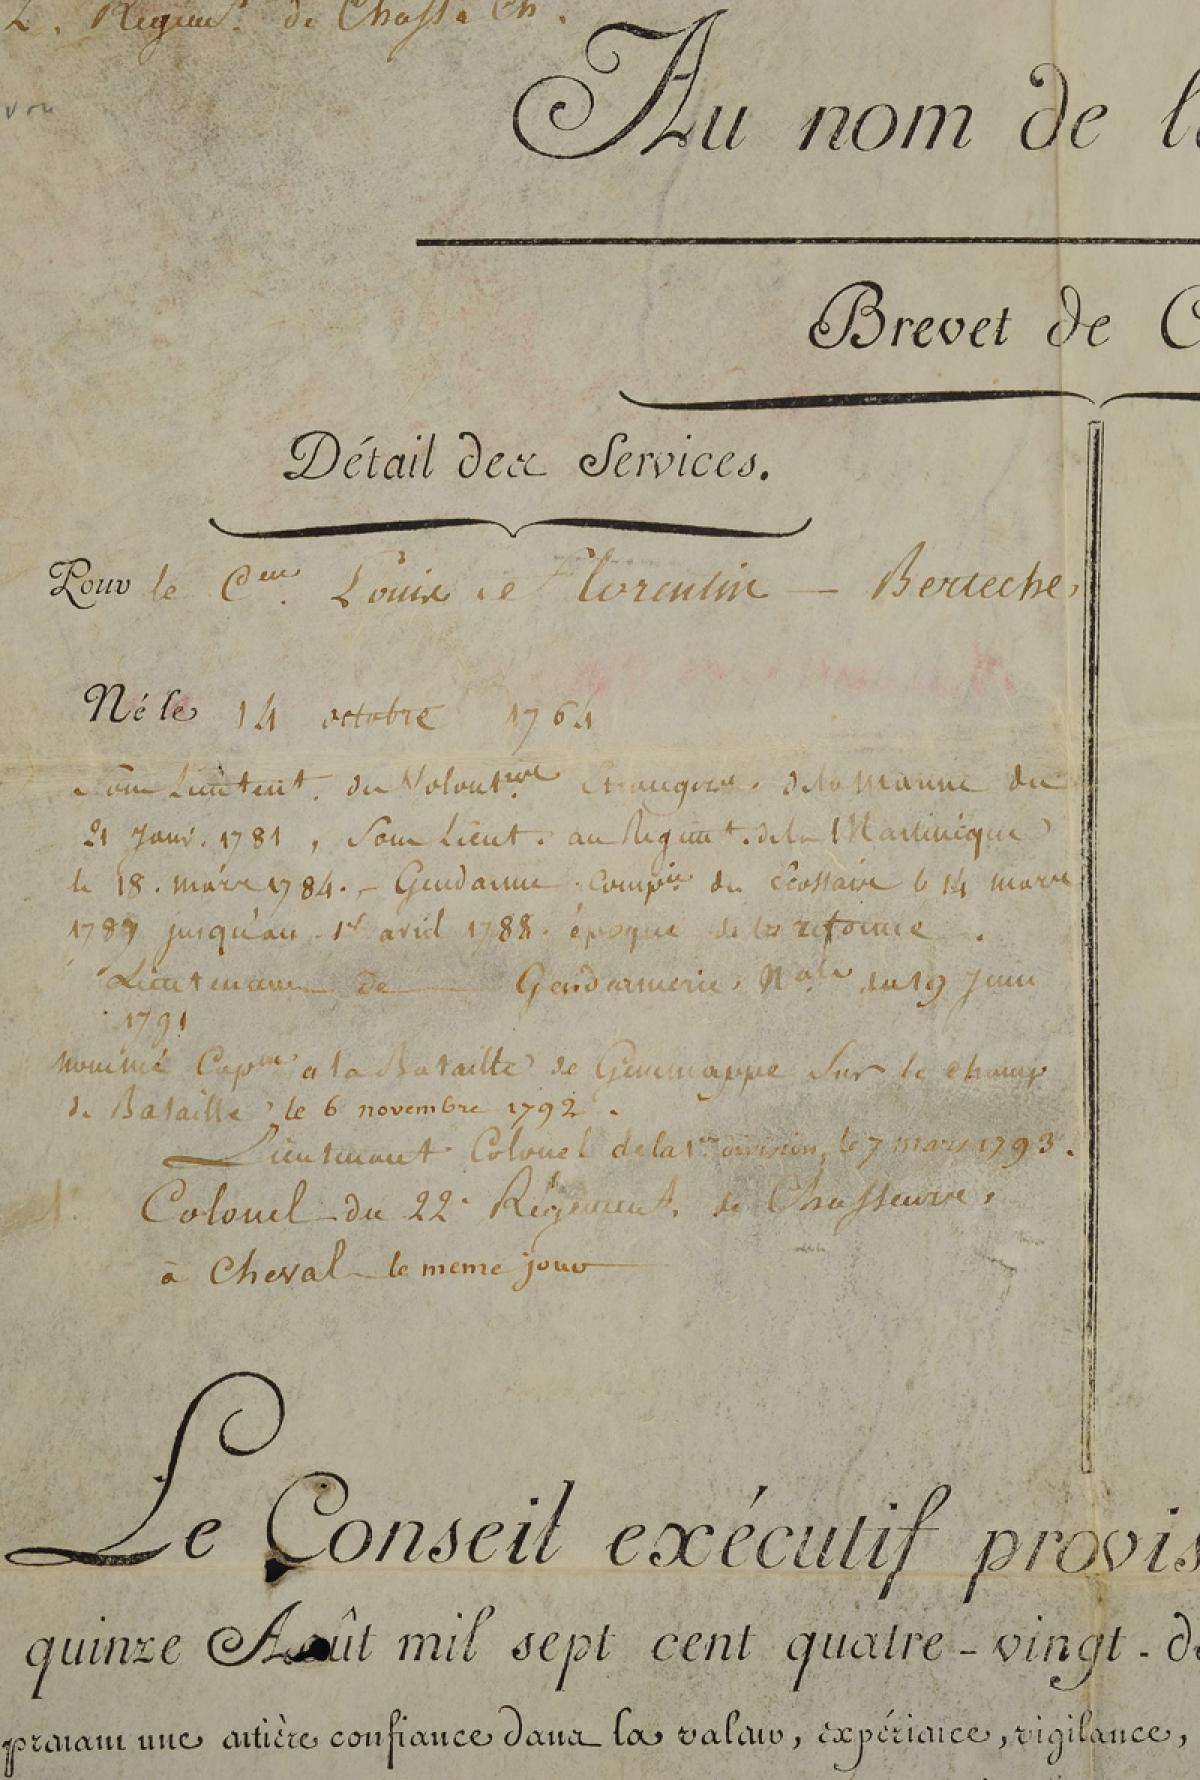 Regim.t de Chass. a Ch.
Au nom de
Brevet de
Détail des Services.
Pour le C.en Louis Florentin — Berteche,
Né le 14 octobre 1764
Sous Lieutent. des Volont.res Etrangers. de la Marine du
21 Janv. 1781, Sous Lieut. au Regim.t de la Martinicque
le 18. mars 1784. - Gendarme Comp.ie des écossais le 14 mars
1787 jusqu'au 1.er avril 1788. époque de la reforme.
Lieutenant de Gendarmerie N.ale du 19 Juin
1791
nommé Cap.ne a la Bataille de Gemmappe Sur le champ
de Bataille, le 6 novembre 1792.
Lieutenant Colonel de la 1.re division, le 7 mars 1793.
Colonel du 22.e Régiment. de Chasseurs,
à Cheval le meme jour
Le Conseil exécutif provis
quinze Août mil sept cent quatre-vingt-d
prenant une entière confiance dans la valeur, expérience, vigilance,